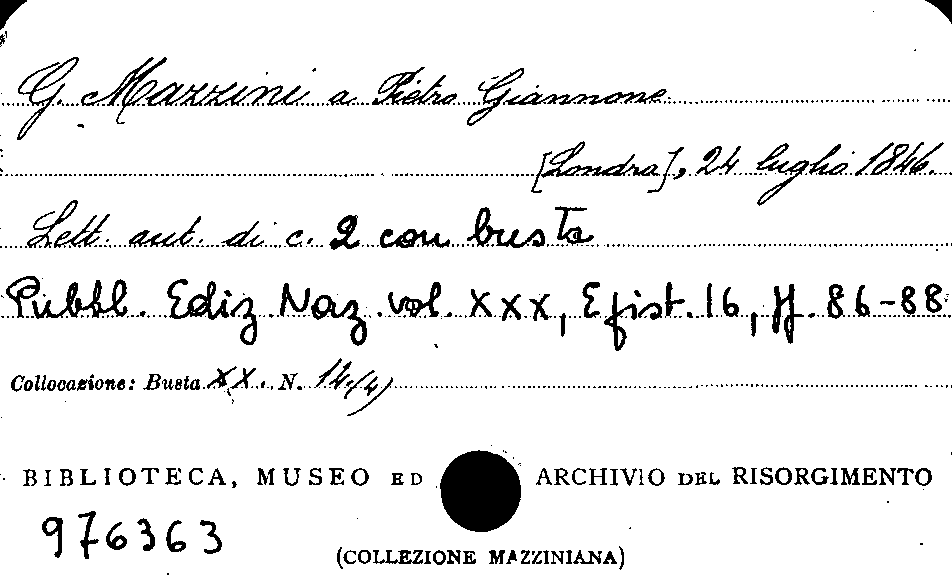 G. Mazzini a Pietro Giannone
[Londra], 24 luglio 1846.
Lett. aut. di c. 2 con busta
Pubbl. Ediz. Naz. vol. XXX, Epist. 16, pp. 86-88
Collocazione: Busta XX. N. 14/4)
BIBLIOTECA, MUSEO ED ARCHIVIO DEL RISORGIMENTO
976363
(COLLEZIONE MAZZINIANA)